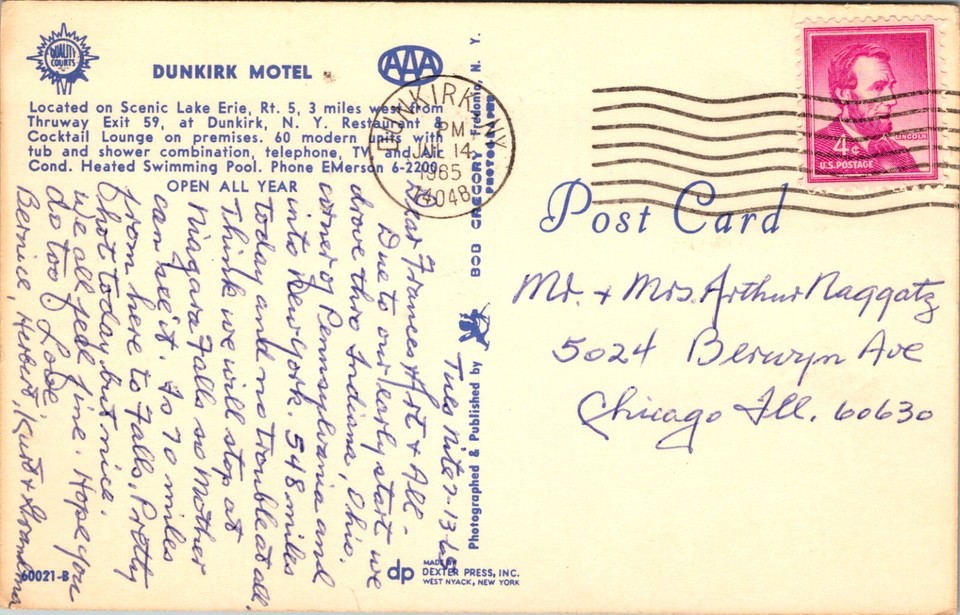 QUALITY COURTS
DUNKIRK MOTEL
AAA
Located on Scenic Lake Erie, Rt. 5, 3 miles west from
Thruway Exit 59, at Dunkirk, N. Y. Restaurant &
Cocktail Lounge on premises. 60 modern units with
tub and shower combination, telephone, TV and Air
Cond. Heated Swimming Pool. Phone EMerson 6-2200
OPEN ALL YEAR
DUNKIRK, NY
PM
14
1965
14048
LINCOLN
4¢
U.S. POSTAGE
Post Card
Tues nite 7-13-65
Dear Frances Art & All -
Due to our early start we
drove thro Indiana, Ohio,
corner of Pennsylvania and
into New york. 548 miles
today and no trouble at all.
Think we will stop at
Niagara Falls so Mother
can see it. Is 70 miles
from here to Falls. Pretty
hot today but nice.
We all feel fine. Hope you
do too. Love,
Bernice, Herbert, Kurt & Grandma
Mr. & Mrs. Arthur Naggatz
5024 Berwyn Ave
Chicago Ill. 60630
Photographed & Published by BOB GREGORY Fredonia, N. Y.
60021-B
dp
MADE BY
DEXTER PRESS, INC.
WEST NYACK, NEW YORK